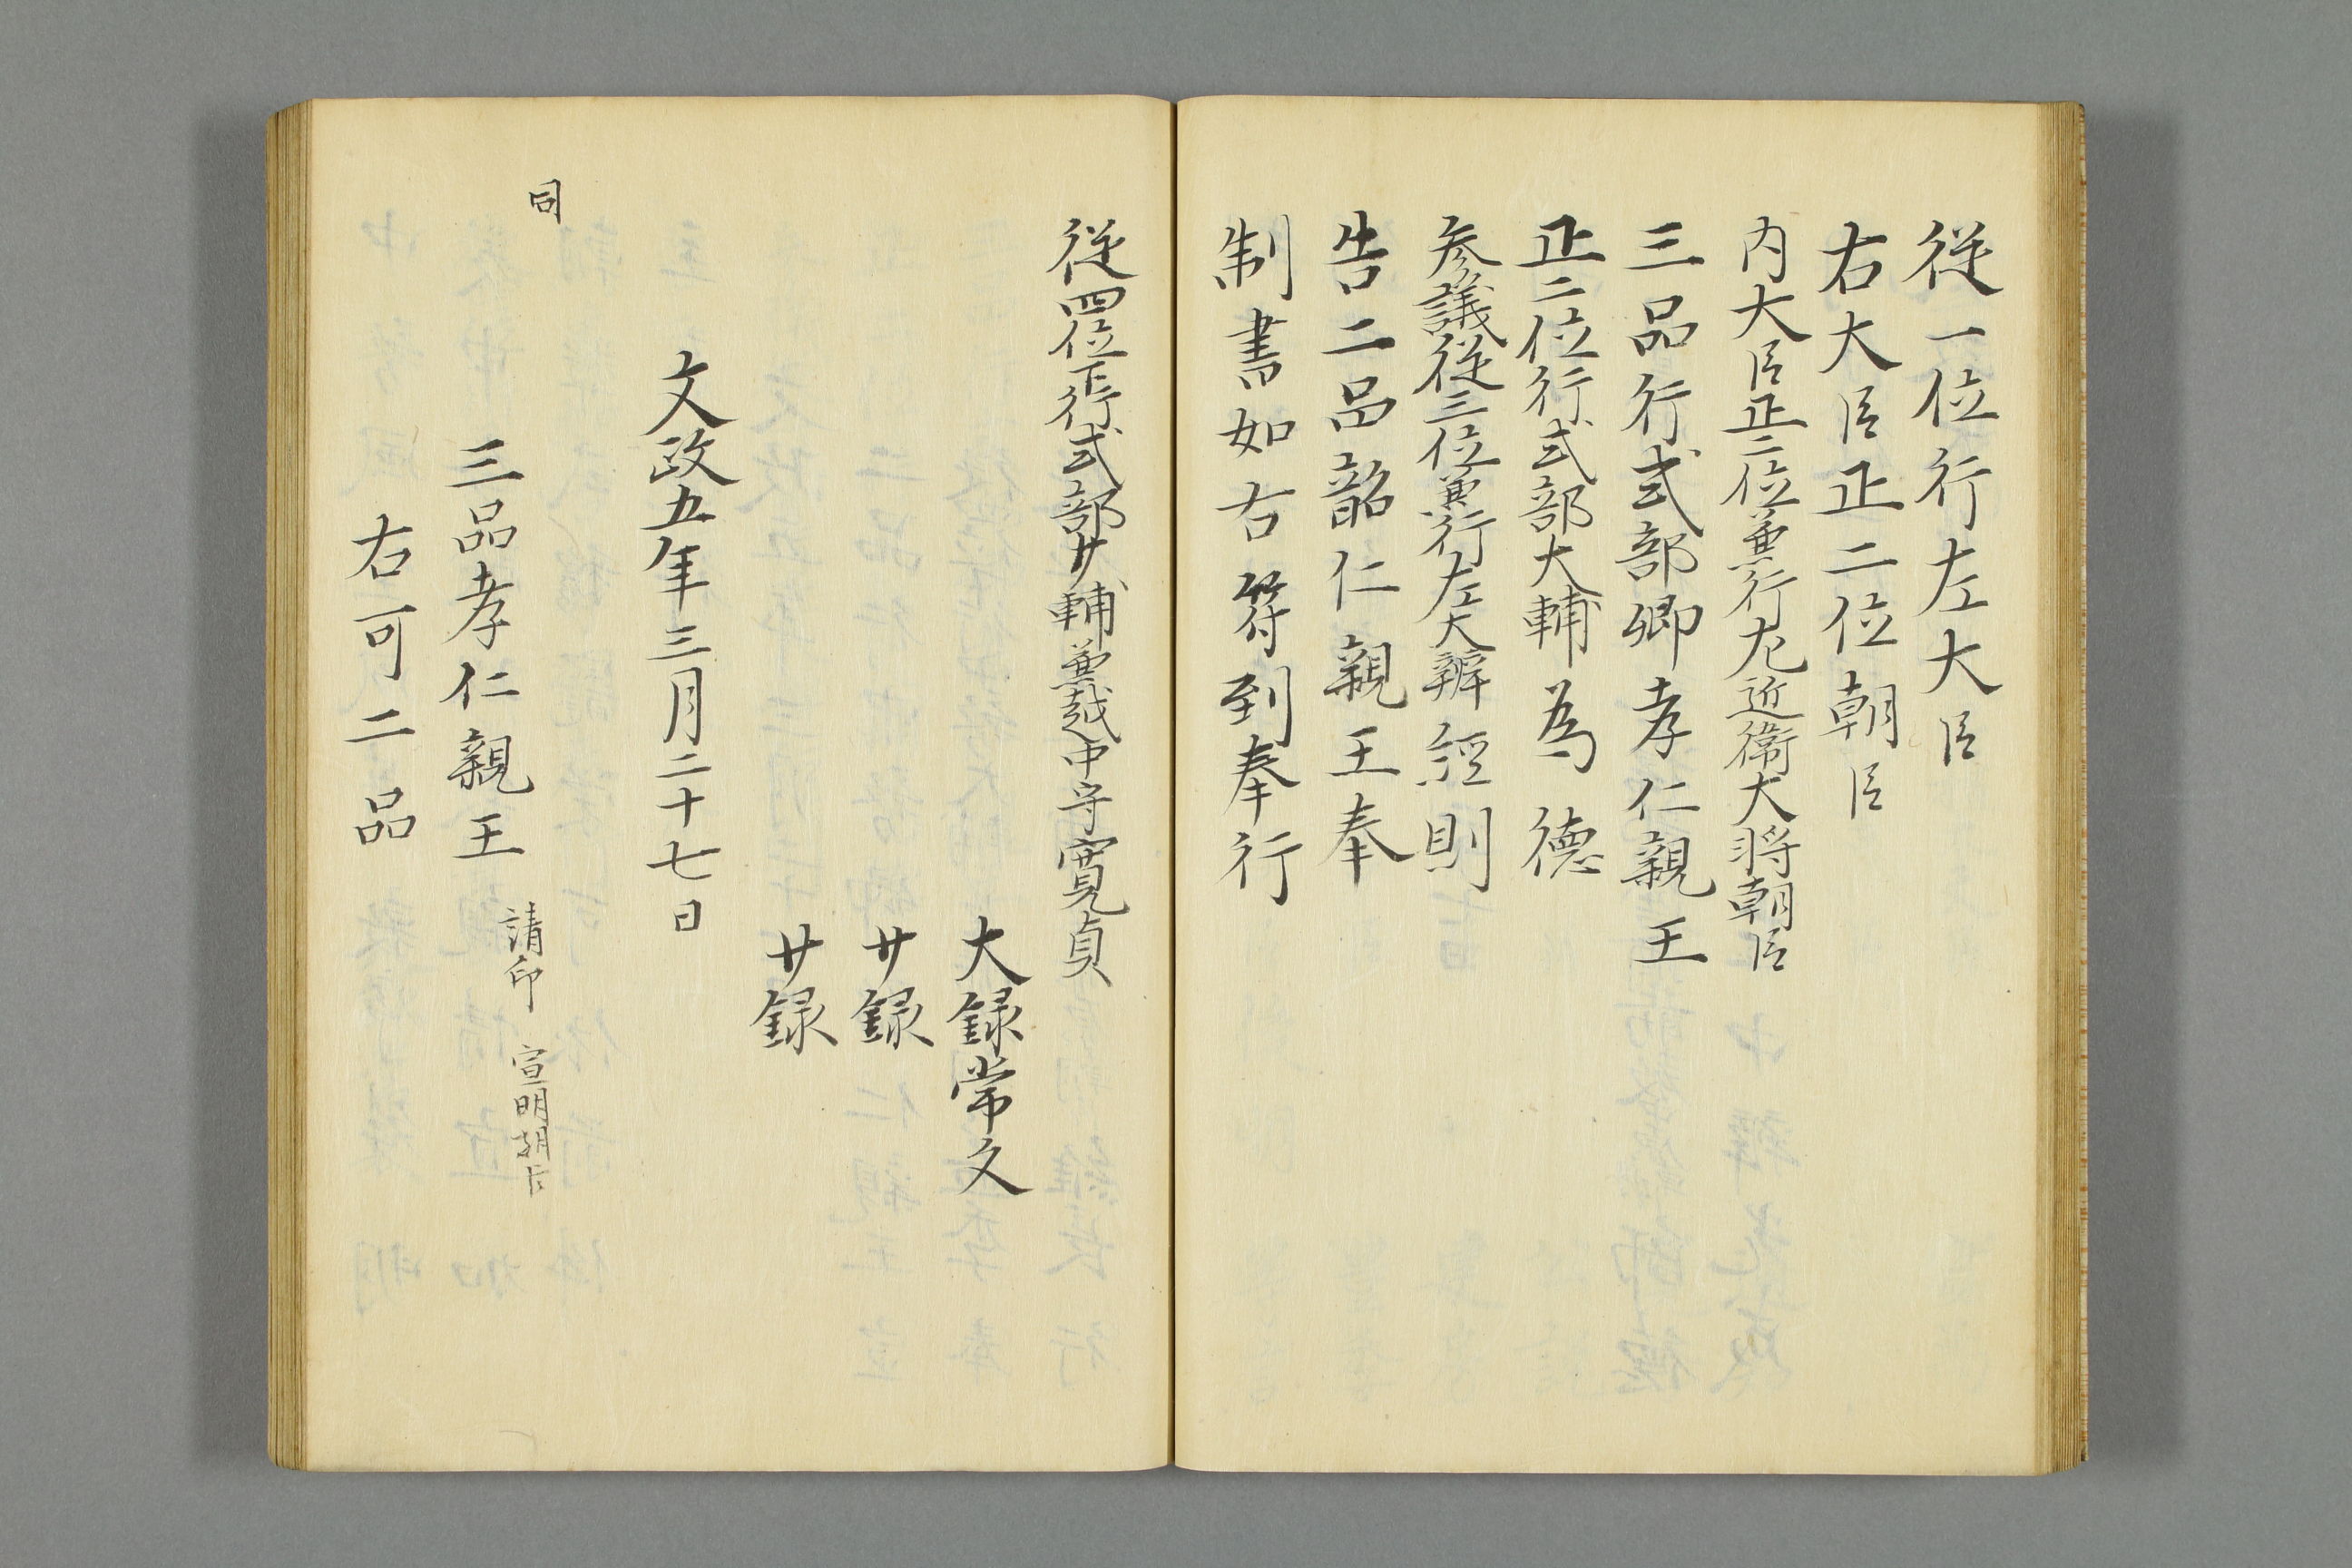 従一位行左大臣
右大臣正二位朝臣
内大臣正二位兼行左近衛大将朝臣
三品行式部卿孝仁親王
正二位行式部大輔為徳
参議従三位兼行左大辨経則
告二品韶仁親王奉
制書如右符到奉行
従四位下行式部少輔兼越中守寛貞
大録常久
少録
少録
文政五年三月二十七日
同
請印 宣明朝臣
三品孝仁親王
右可二品